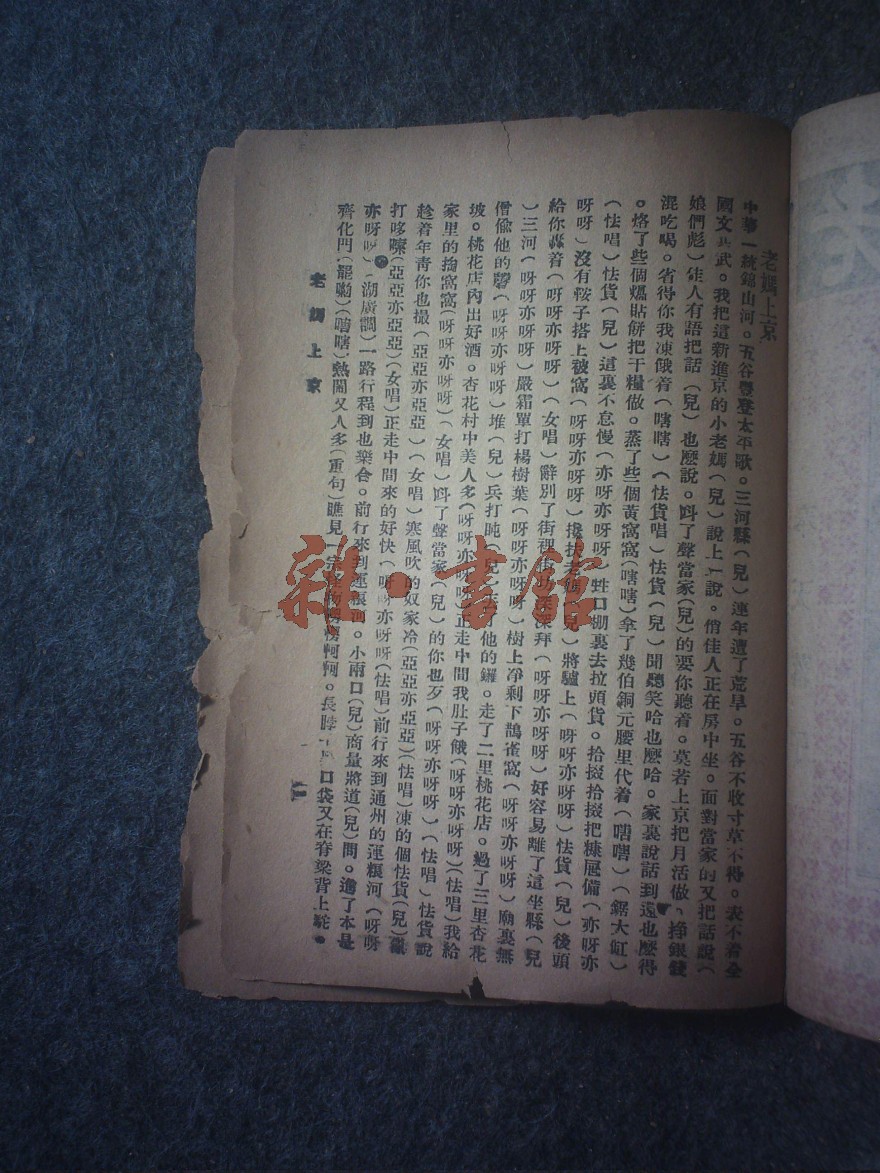 老媽上京
中華一統錦山河。五谷豐登太平歌。三河縣(兒)連年遭了荒旱。五谷不收寸草不得。表不着全
國文共武。我把這新進京的小老媽(兒)說上一說。俏佳人正在房中坐。面對當家的又把話說(
娘們彪)佳人有語把話(兒)也麽說。呌了聲當家(兒)的要你聽着。莫若上京把月活做。挣銀錢
混吃喝。省得你我凍餓着(嘻嘻)(怯貨唱)怯貨(兒)聞聽笑哈也麽哈。家裏說話到遠也麽得
。烙了些個爐貼餅把干糧做。蒸了些個黃窩窩(嘻嘻)拿了幾伯銅元腰里代着(嘻嘻)(鋸大缸)
(怯唱)怯貨(兒)這裏不怠慢(亦呀亦呀呀)牲口棚裏去拉頭貨。拾掇拾掇把糠屜備(亦呀亦
呀呀)沒有鞍子搭上被窩(呀呀亦呀呀)攙扶老媽(兒)將驢上(呀呀亦呀呀)怯貨(兒)後頭
給你轟着(呀呀亦呀呀)(女唱)辭別了街裡街坊深深拜(呀呀亦呀呀)好容易離了這坐縣(兒
)三河(呀呀亦呀呀)嚴霜單打楊樹葉(呀呀亦呀呀)樹上净剩下鵲雀窩(呀呀亦呀呀)廟裏無
僧偷他的磬(呀呀亦呀呀)堆(兒)兵打盹(兒)他的鑼。走了二里桃花店。過了三里杏花
坡。桃花店內出好酒。杏花村中美人多(呀呀亦呀呀)正走中間我肚子餓(呀呀亦呀呀)(怯唱)我給
家里的掏窩窩(呀呀亦呀呀)(女唱)呌了聲當家(兒)的你也歹(呀呀亦呀呀)(怯唱)怯貨說
趁着年靑你也撮(亞亞亦亞亞)(女唱)寒風吹的奴家冷(亞亞亦亞亞)(怯唱)凍的個怯貨(兒)
打哆嗦(亞亞亦亞亞)(女唱)正走中間來的好快(呀呀亦呀呀)(怯唱)前行來到通州的運粮河(呀呀
亦呀呀)(湖廣調)一路行程到也樂合。前行來到運粮河。小兩口(兒)商量將道(兒)問。進了本是
齊化門(罷喲)(嘻嘻)熱鬧又人多(重句)瞧見一宗。長脖口袋又在脊梁背上駝。
老媽上京
一
雜·書館